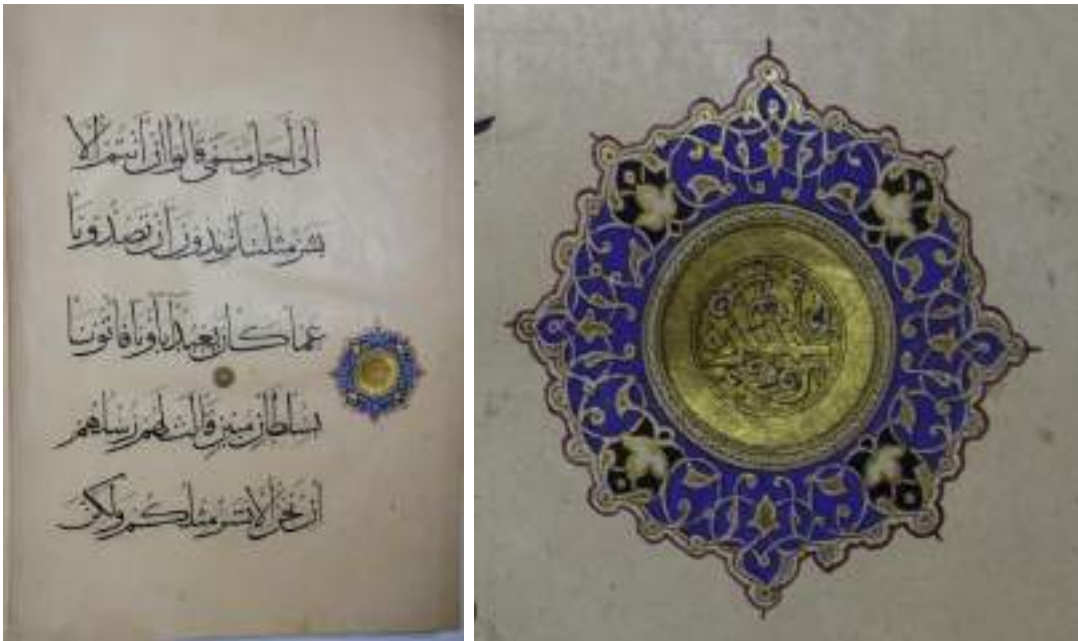 الى أجل مسمى قالوا إن أنتم إلا
بشر مثلنا تريدون أن تصدونا
عما كان يعبد آباؤنا فأتونا
بسلطان مبين قالت لهم رسلهم
إن نحن إلا بشر مثلكم ولكن